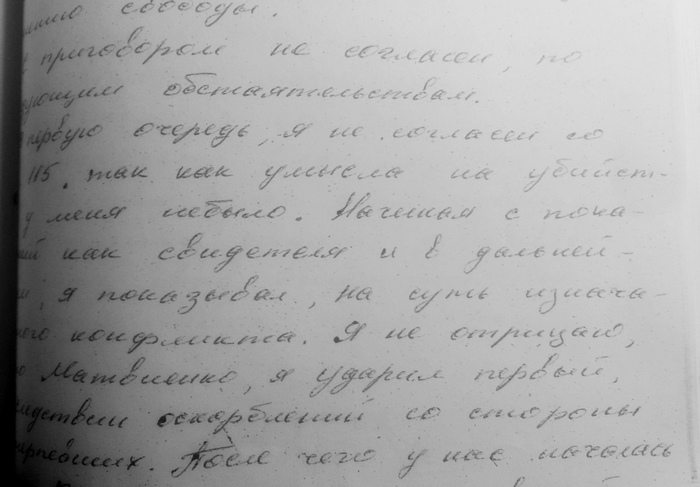 свободы.
приговором не согласен, по
обстаятельствам.
первую очередь, я не согласен со
115. так как умысла на убийст-
у меня небыло. Начиная с пока-
как свидетеля и в дальней-
я показывал, на суть изнача-
конфликта. Я не отрицаю,
Матвиенко, я ударил первый,
оскорблений со стороны
После чего у нас началась